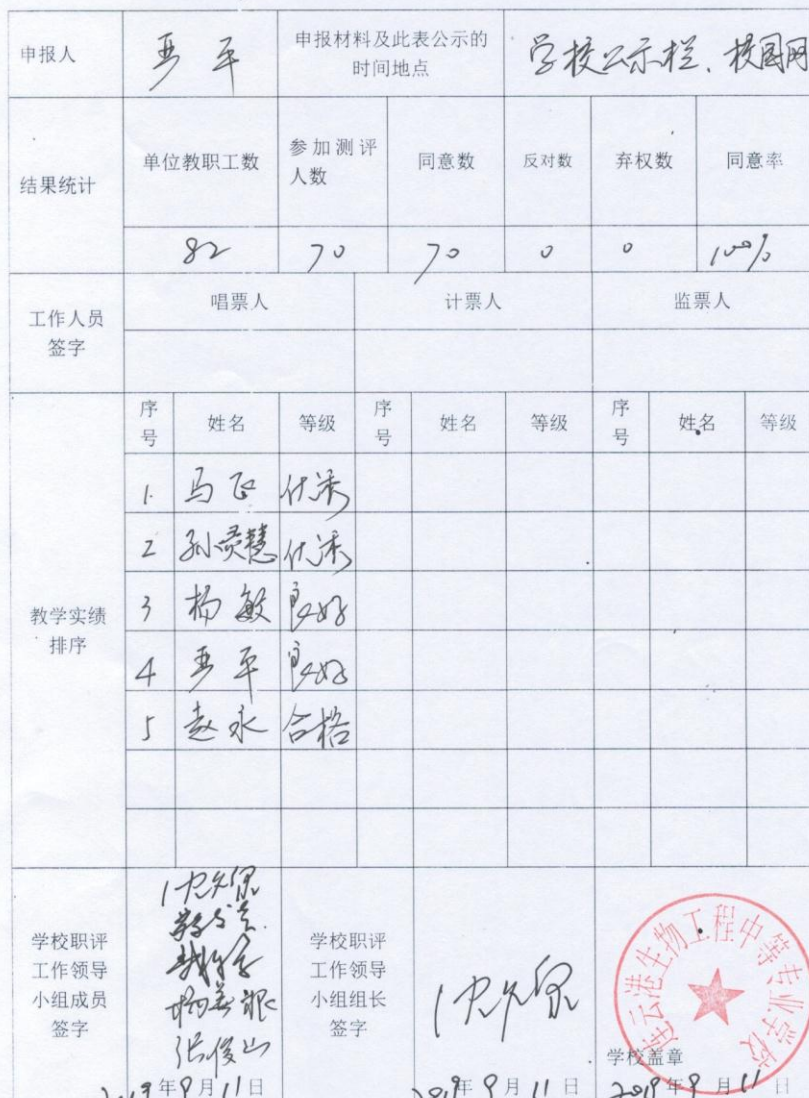 申报人
平
申报材料及此表公示的
时间地点
学校公示栏、校园网
结果统计
单位教职工数
参加测评
人数
同意数
反对数
弃权数
同意率
82
70
70
0
0
100%
工作人员
签字
唱票人
计票人
监票人
教学实绩
排序
序号
姓名
等级
序号
姓名
等级
序号
姓名
等级
1. 马 优秀
2 孙 慧 优秀
3 杨敏 良好
4 平 良好
5 赵永 合格
学校职评
工作领导
小组成员
签字
张俊山
2019年9月11日
学校职评
工作领导
小组组长
签字
2019年9月11日
连云港生物工程中等专业学校
学校盖章
2019年9月11日